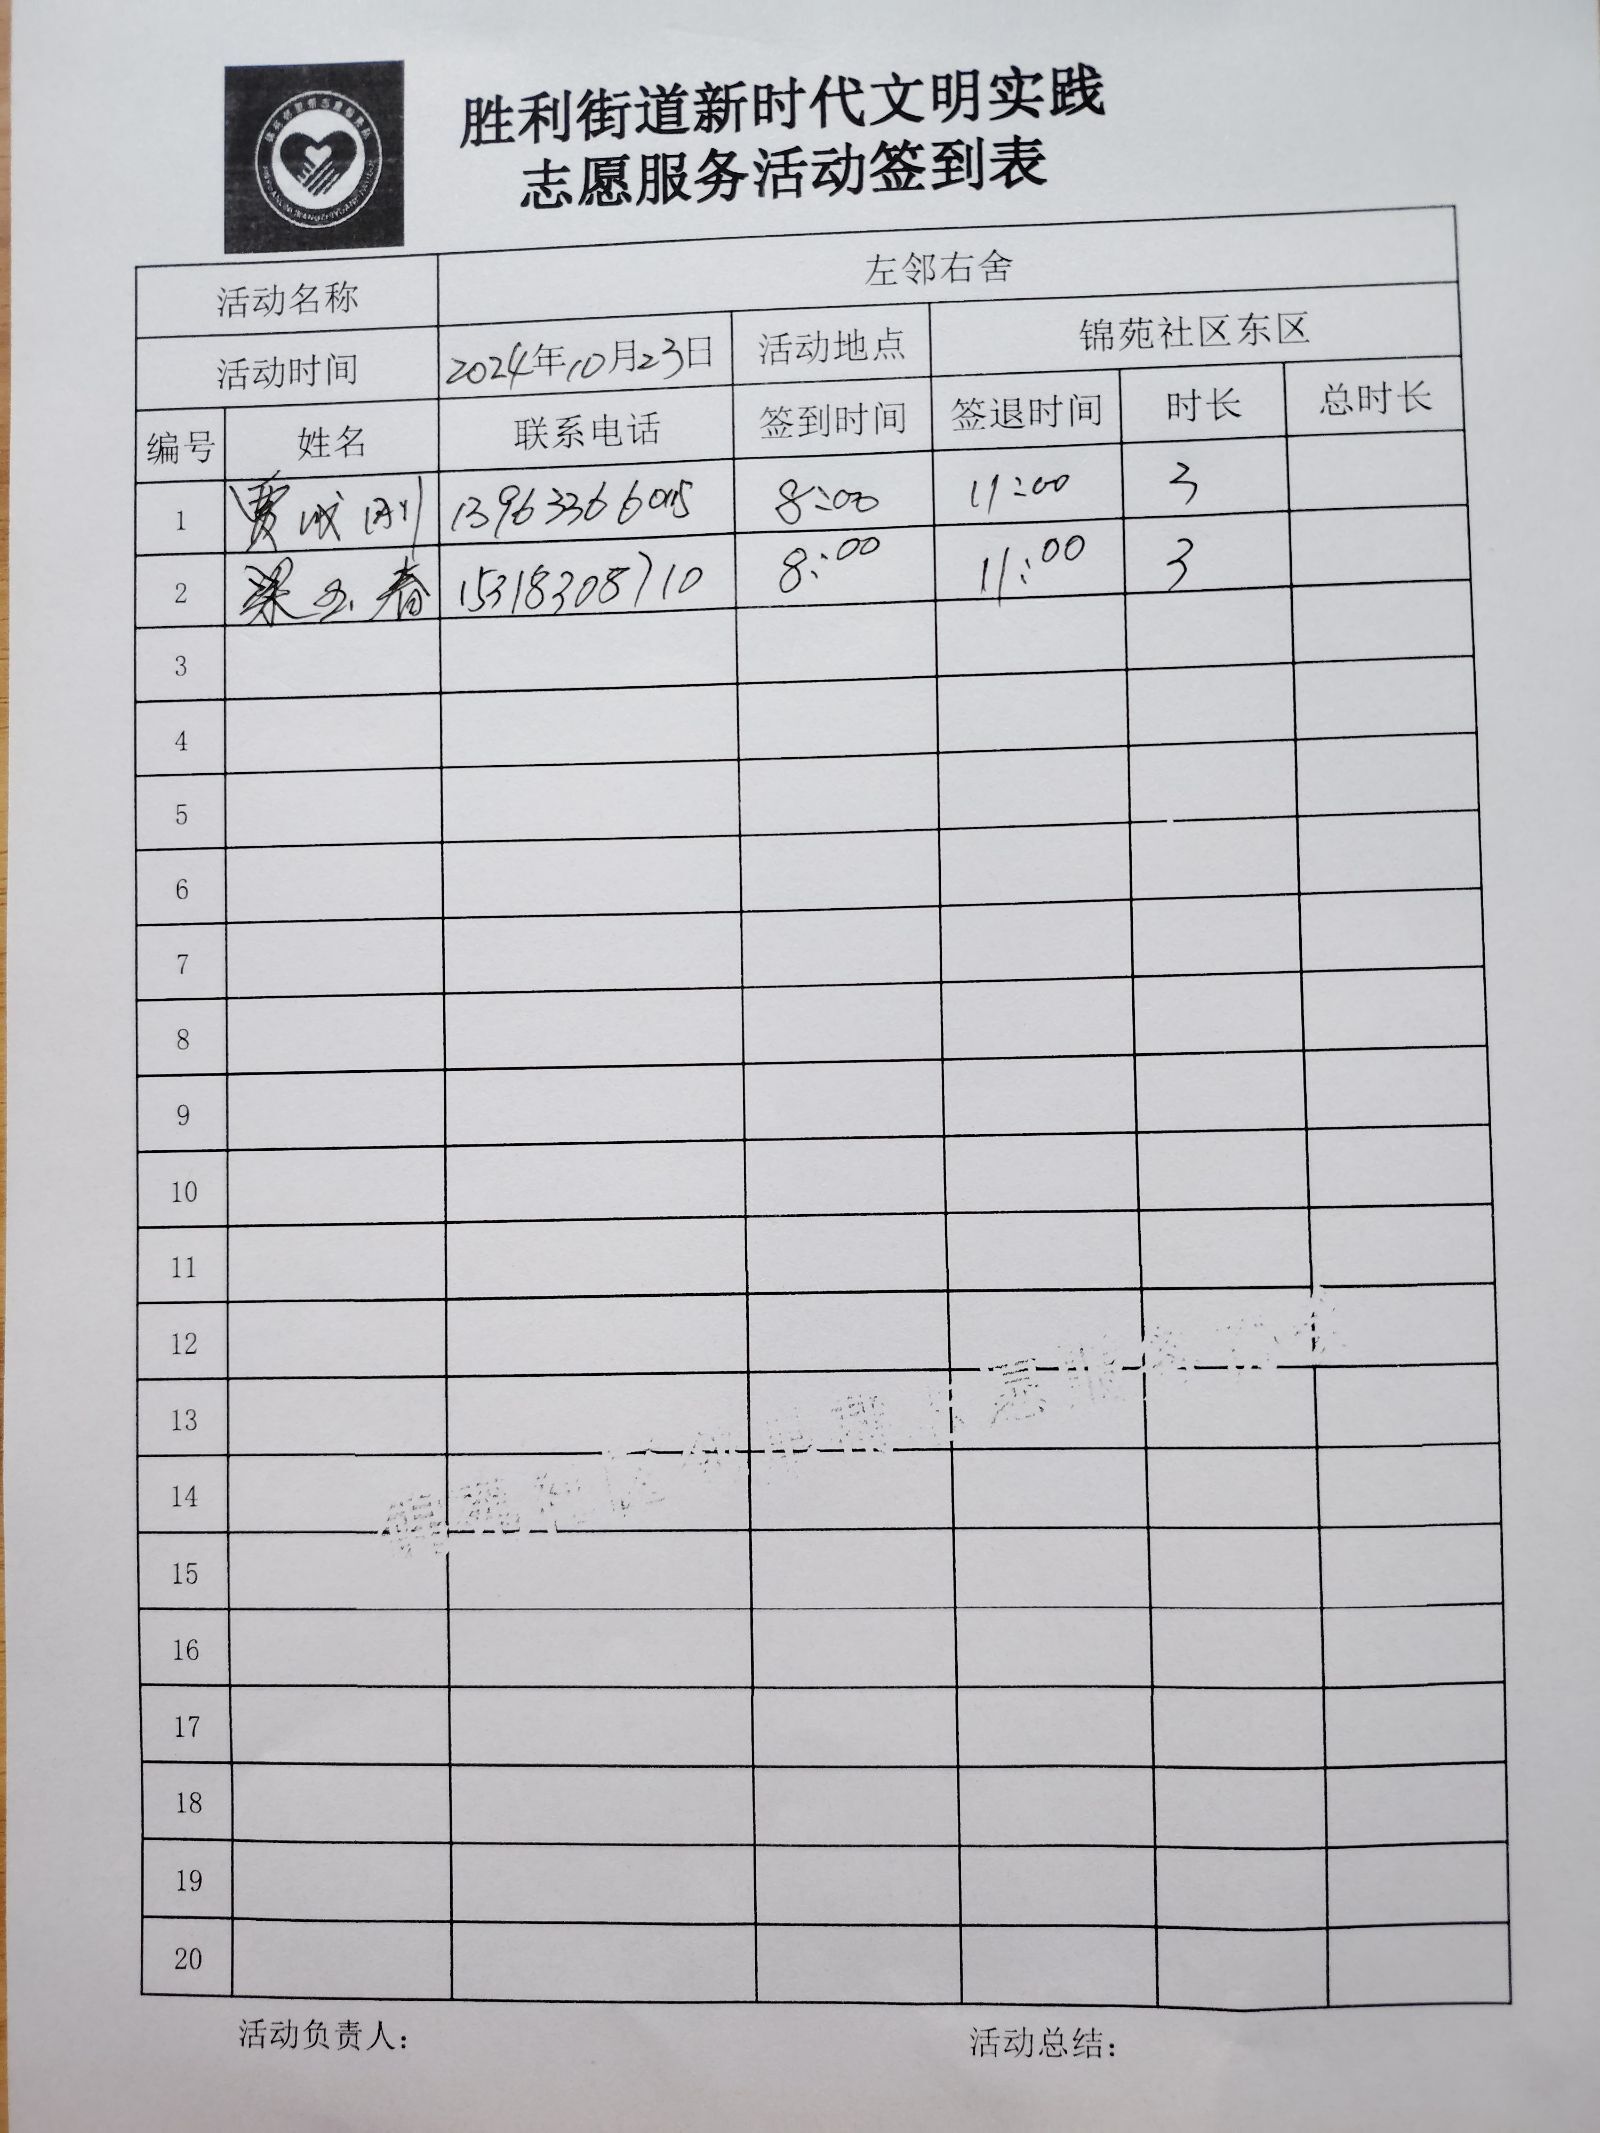 胜利街道新时代文明实践
志愿服务活动签到表
活动名称 左邻右舍
活动时间 2024年10月23日 活动地点 锦苑社区东区
编号 姓名 联系电话 签到时间 签退时间 时长 总时长
1 贾成刚 8:00 11:00 3
2 梁玉春 15318308710 8:00 11:00 3
3
4
5
6
7
8
9
10
11
12
13
14
15
16
17
18
19
20
活动负责人： 活动总结：